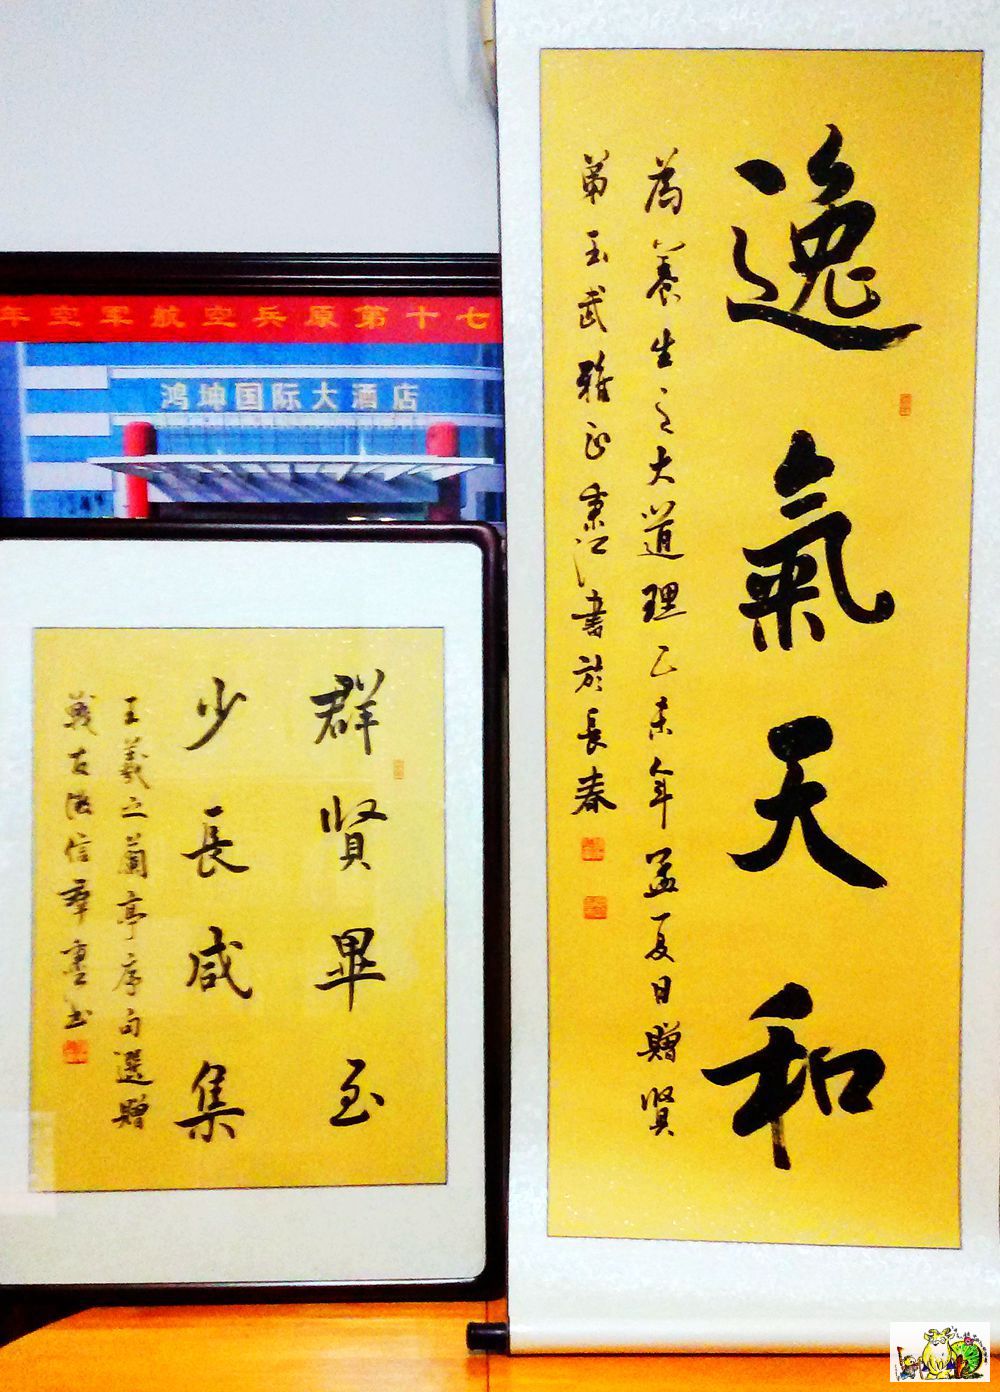 逸氣天和
為養生之大道理乙未年孟夏日贈賢
弟玉武雅正秉江書於長春
年空军航空兵原第十七
鸿坤国际大酒店
群賢畢至
少長咸集
王羲之蘭亭序句選贈
戰友
信群